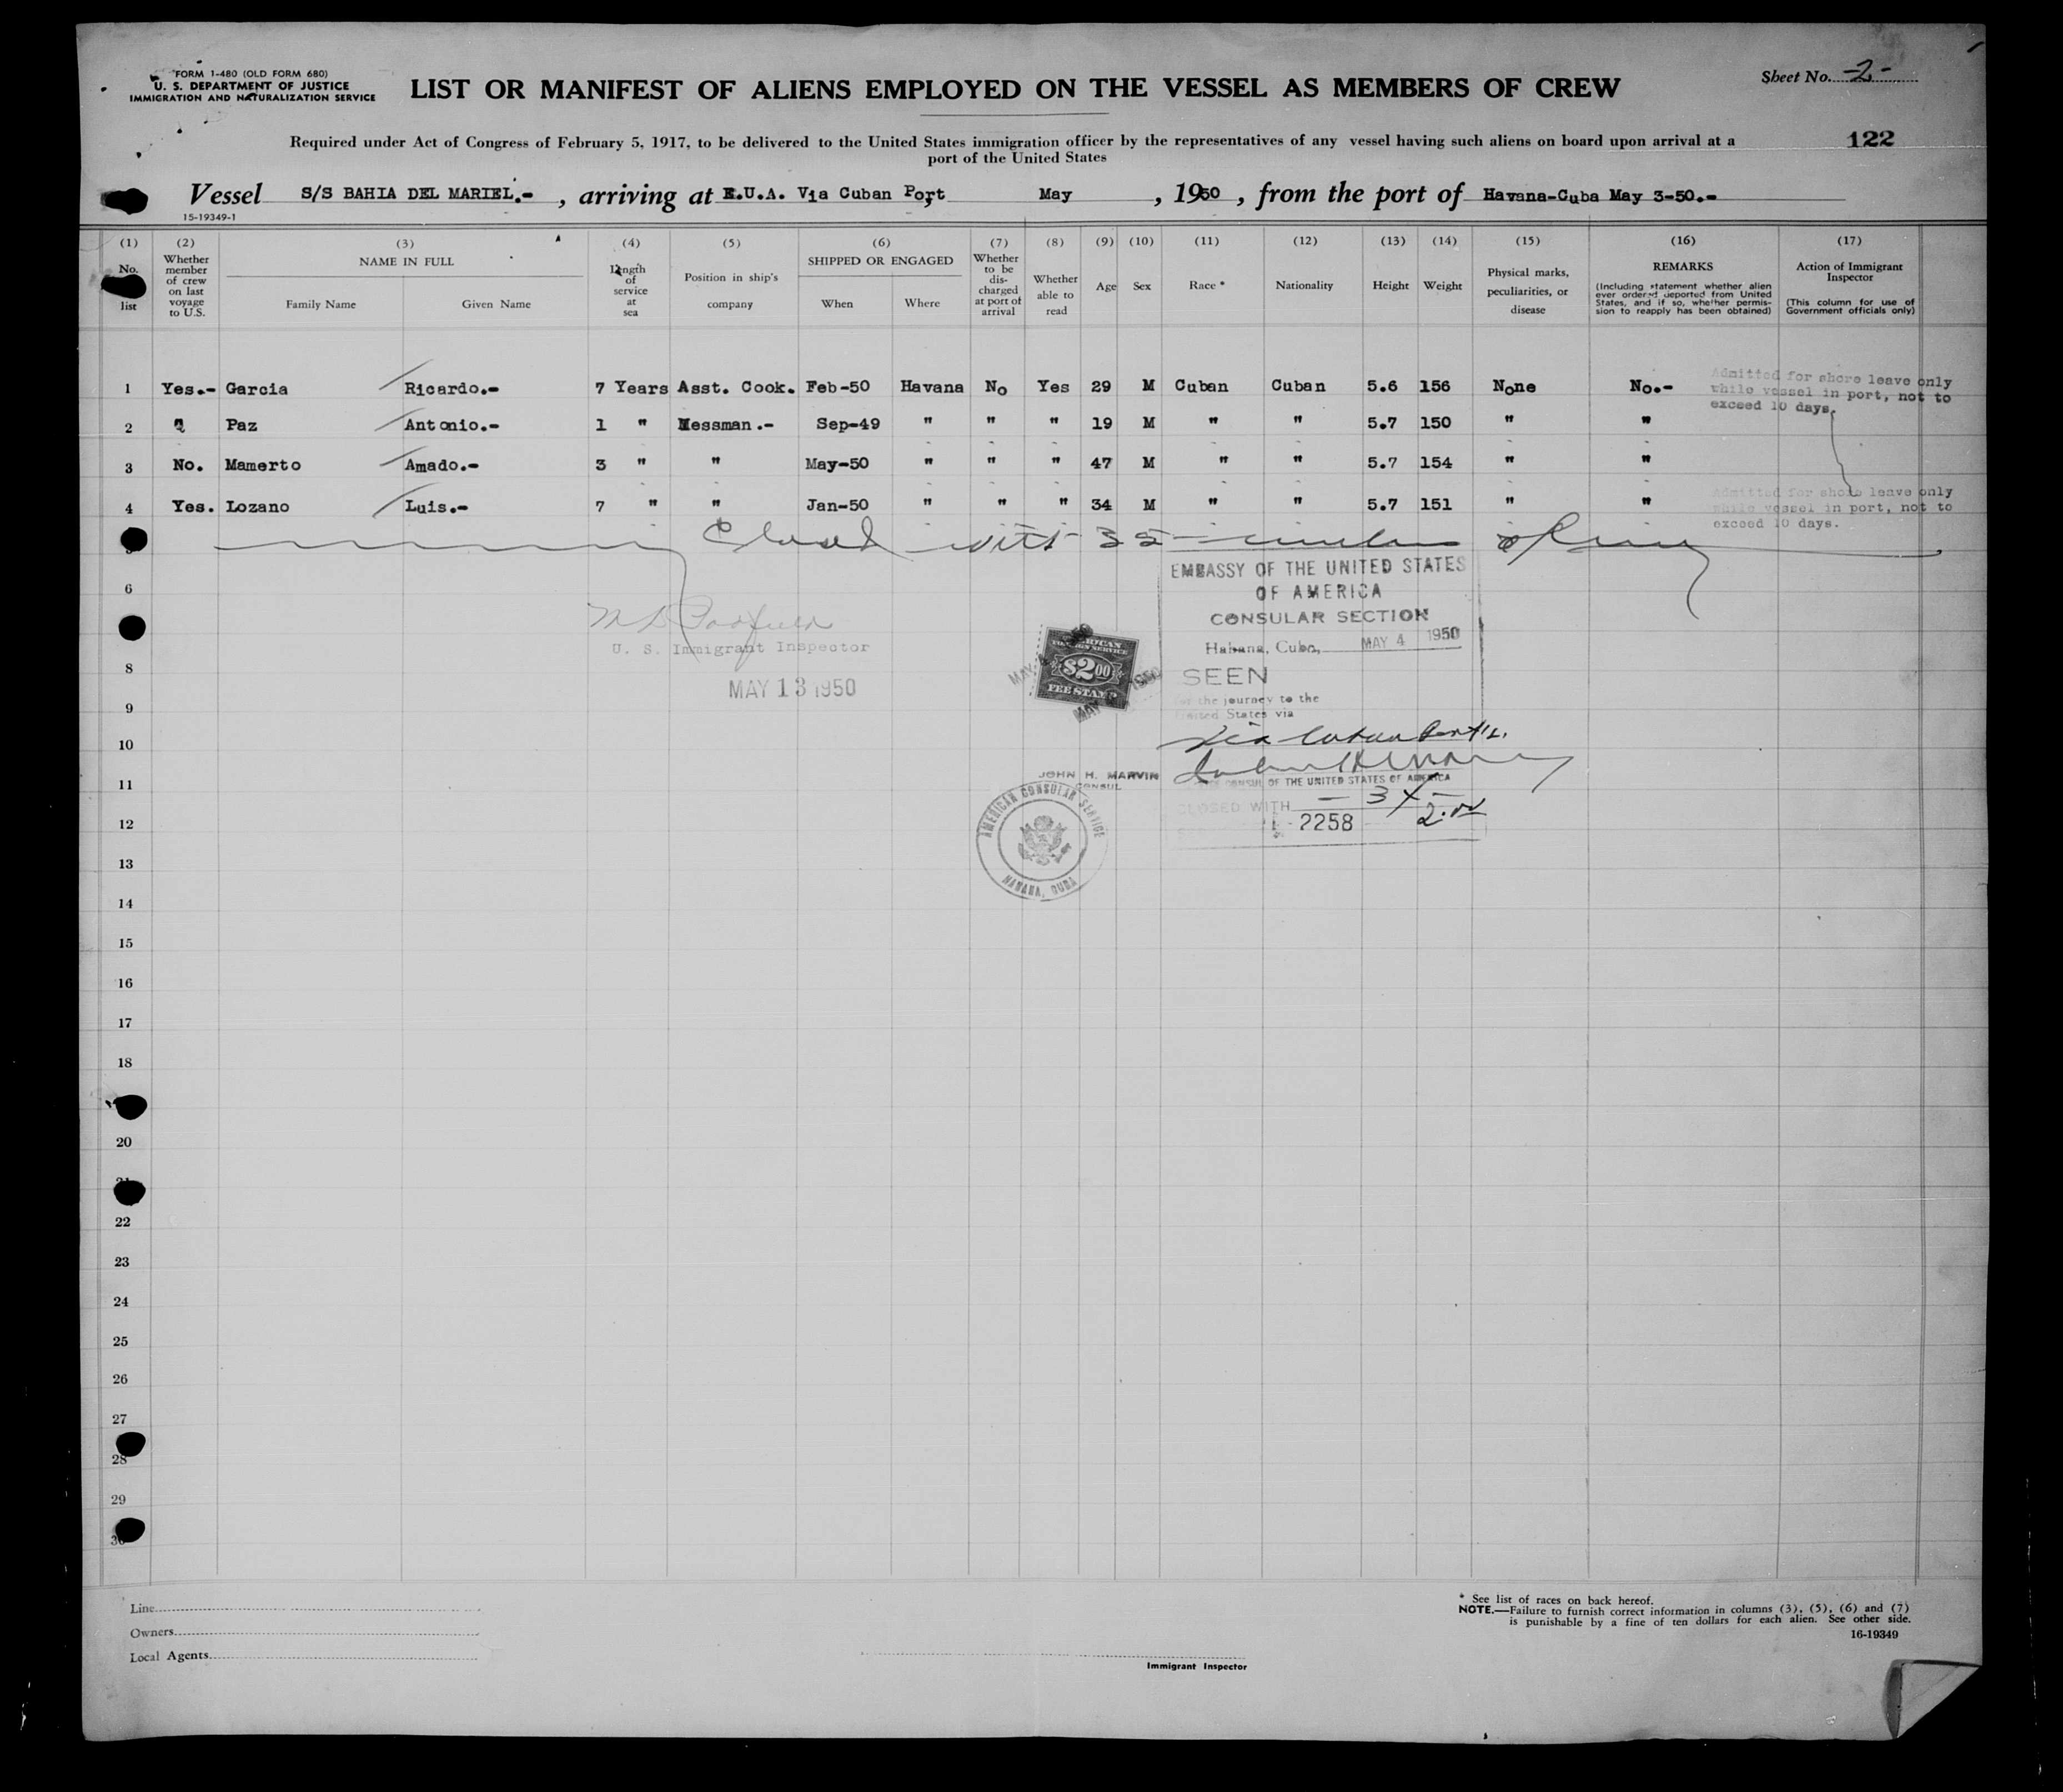 FORM 1-480 (OLD FORM 680)
U. S. DEPARTMENT OF JUSTICE
IMMIGRATION AND NATURALIZATION SERVICE
LIST OR MANIFEST OF ALIENS EMPLOYED ON THE VESSEL AS MEMBERS OF CREW
Sheet No. -2-
Required under Act of Congress of February 5, 1917, to be delivered to the United States immigration officer by the representatives of any vessel having such aliens on board upon arrival at a
port of the United States
122
Vessel S/S BAHIA DEL MARIEL.- , arriving at E.U.A. Via Cuban Port May , 1950 , from the port of Havana-Cuba May 3-50.-
15-19349-1
(1) (2) (3) (4) (5) (6) (7) (8) (9) (10) (11) (12) (13) (14) (15) (16) (17)
No. list
Whether member of crew on last voyage to U.S.
NAME IN FULL
Family Name Given Name
Length of service at sea
Position in ship's company
SHIPPED OR ENGAGED
When Where
Whether to be dis-charged at port of arrival
Whether able to read
Age Sex Race * Nationality Height Weight
Physical marks, peculiarities, or disease
REMARKS
(Including statement whether alien ever ordered deported from United States, and if so, whether permis-sion to reapply has been obtained)
Action of Immigrant Inspector
(This column for use of Government officials only)
1 Yes.- Garcia Ricardo.- 7 Years Asst. Cook. Feb-50 Havana No Yes 29 M Cuban Cuban 5.6 156 None No.-
Admitted for shore leave only
while vessel in port, not to
exceed 10 days.
2 " Paz Antonio.- 1 " Messman.- Sep-49 " " " 19 M " " 5.7 150 " "
3 No. Mamerto Amado.- 3 " " May-50 " " " 47 M " " 5.7 154 " "
4 Yes. Lozano Luis.- 7 " " Jan-50 " " " 34 M " " 5.7 151 " "
Admitted for shore leave only
while vessel in port, not to
exceed 10 days.
Closed with
EMBASSY OF THE UNITED STATES
OF AMERICA
CONSULAR SECTION
Habana, Cuba, MAY 4 1950
SEEN
for the journey to the
United States via
via Cuban Ports.
U. S. Immigrant Inspector
MAY 13 1950
AMERICAN
FOREIGN SERVICE
$2.00
FEE STAMP
JOHN H. MARVIN
CONSUL
CONSUL OF THE UNITED STATES OF AMERICA
CLOSED WITH
2258 2.00
AMERICAN CONSULAR SERVICE
HABANA, CUBA
6
8
9
10
11
12
13
14
15
16
17
18
20
22
23
24
25
26
27
28
29
30
Line
Owners
Local Agents
Immigrant Inspector
* See list of races on back hereof.
NOTE.—Failure to furnish correct information in columns (3), (5), (6) and (7)
is punishable by a fine of ten dollars for each alien. See other side.
16-19349